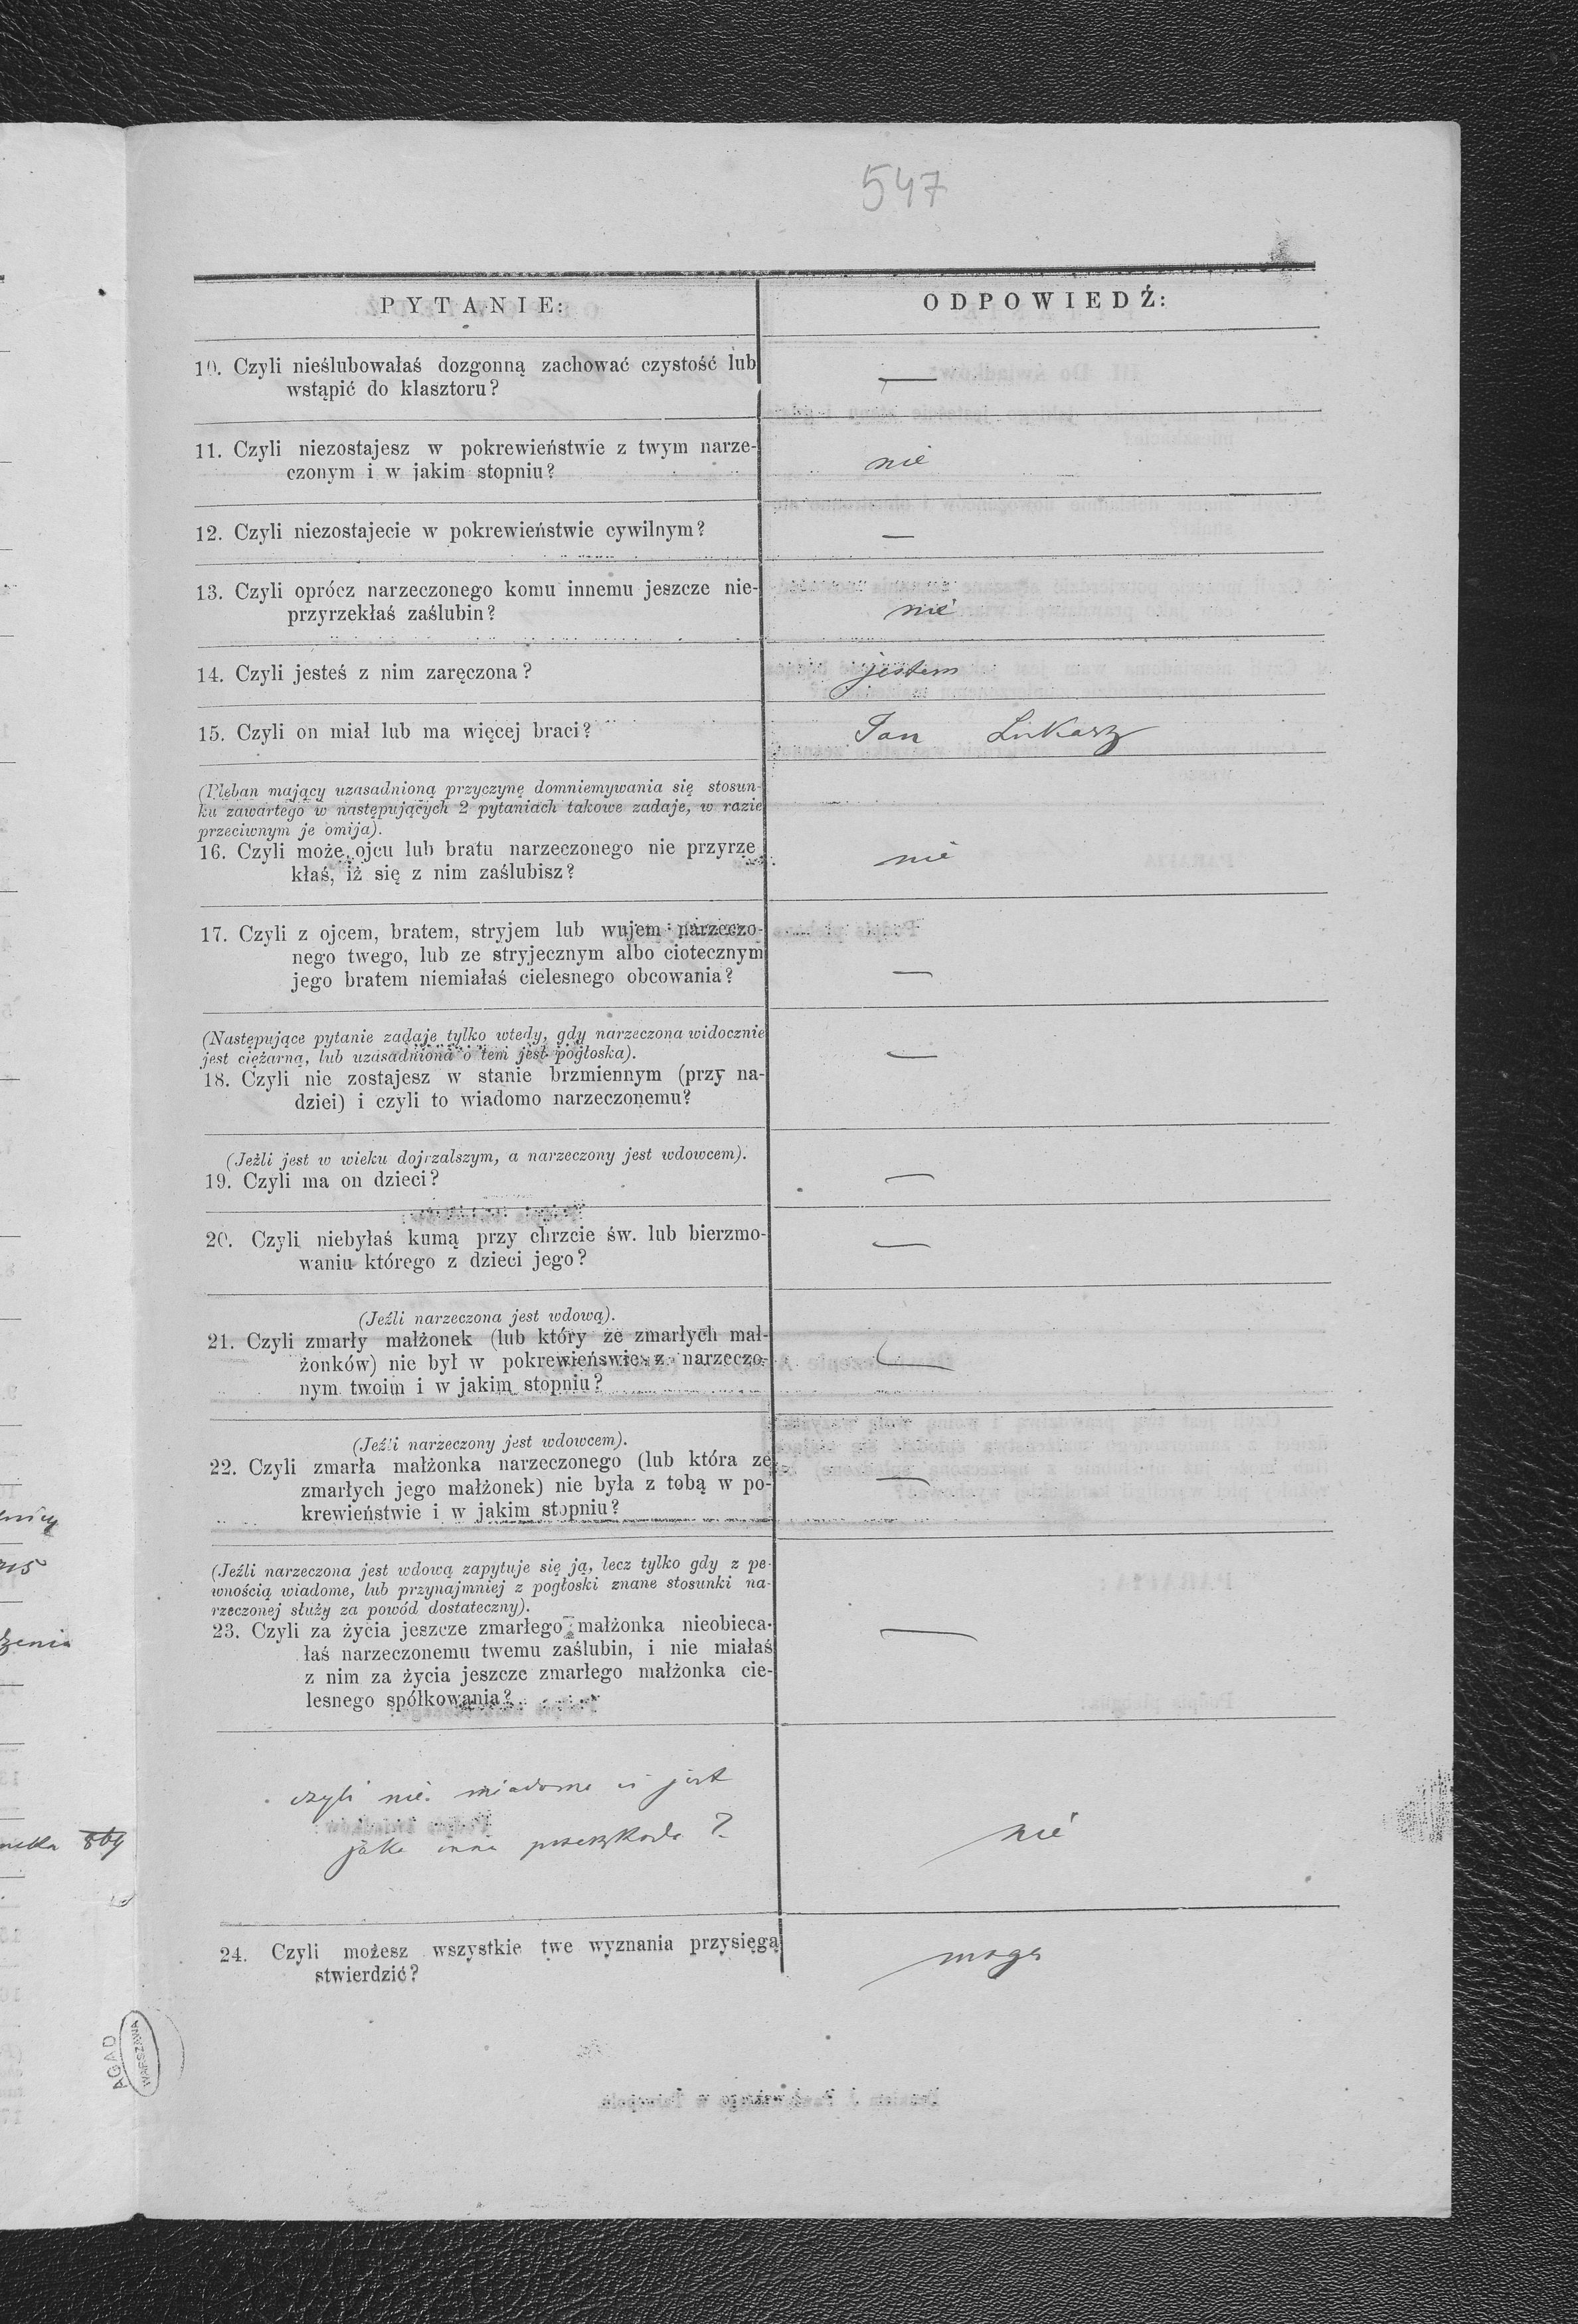 547
PYTANIE:
ODPOWIEDŹ:
10. Czyli nieślubowałaś dozgonną zachować czystość lub
wstąpić do klasztoru?
—
11. Czyli niezostajesz w pokrewieństwie z twym narze-
czonym i w jakim stopniu?
nie
12. Czyli niezostajecie w pokrewieństwie cywilnym?
—
13. Czyli oprócz narzeczonego komu innemu jeszcze nie-
przyrzekłaś zaślubin?
nie
14. Czyli jesteś z nim zaręczona?
jestem
15. Czyli on miał lub ma więcej braci?
Jan Łukasz
(Pleban mający uzasadnioną przyczynę domniemywania się stosun-
ku zawartego w następujących 2 pytaniach takowe zadaje, w razie
przeciwnym je omija).
16. Czyli może ojcu lub bratu narzeczonego nie przyrze
kłaś, iż się z nim zaślubisz?
nie
17. Czyli z ojcem, bratem, stryjem lub wujem narzeczo-
nego twego, lub ze stryjecznym albo ciotecznym
jego bratem niemiałaś cielesnego obcowania?
—
(Następujące pytanie zadaje tylko wtedy, gdy narzeczona widocznie
jest ciężarną, lub uzasadniona o tem jest pogłoska).
18. Czyli nie zostajesz w stanie brzmiennym (przy na-
dziei) i czyli to wiadomo narzeczonemu?
—
(Jeżli jest w wieku dojrzalszym, a narzeczony jest wdowcem).
19. Czyli ma on dzieci?
—
20. Czyli niebyłaś kumą przy chrzcie św. lub bierzmo-
waniu którego z dzieci jego?
—
(Jeźli narzeczona jest wdową).
21. Czyli zmarły małżonek (lub który ze zmarłych mał-
żonków) nie był w pokrewieńswie z narzeczo-
nym twoim i w jakim stopniu?
—
(Jeźli narzeczony jest wdowcem).
22. Czyli zmarła małżonka narzeczonego (lub która ze
zmarłych jego małżonek) nie była z tobą w po-
krewieństwie i w jakim stopniu?
—
(Jeźli narzeczona jest wdową zapytuje się ją, lecz tylko gdy z pe-
wnością wiadome, lub przynajmniej z pogłoski znane stosunki na-
rzeczonej służy za powód dostateczny).
23. Czyli za życia jeszcze zmarłego małżonka nieobieca-
łaś narzeczonemu twemu zaślubin, i nie miałaś
z nim za życia jeszcze zmarłego małżonka cie-
lesnego spółkowania?
—
czyli nie wiadoma ci jest
jaka inna przeszkoda?
nie
24. Czyli możesz wszystkie twe wyznania przysięgą
stwierdzić?
mogę
AGAD
WARSZAWA